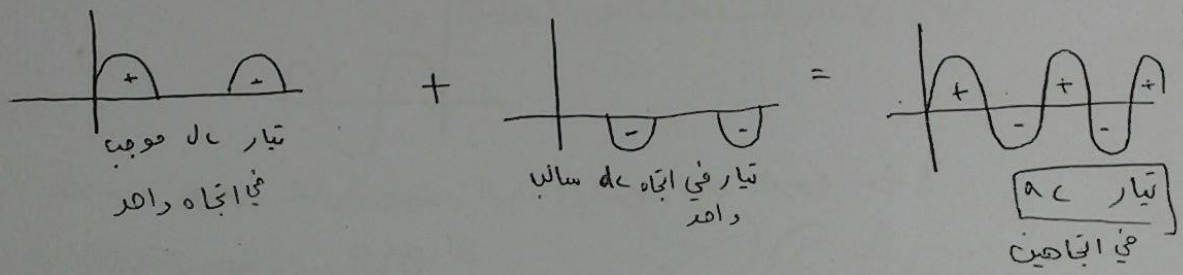 + -
+
- -
=
+ - + - +
تيار dc موجب
في اتجاه واحد
تيار في اتجاه dc سالب
واحد
تيار ac
في اتجاهين